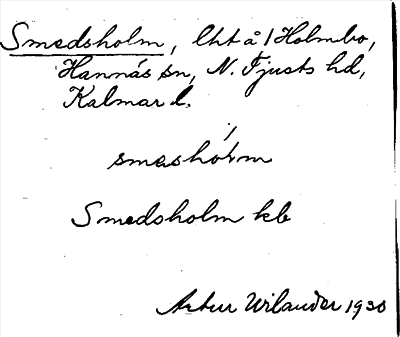 Smedsholm, lht å 1 Holmbo,
Hannäs sn, N. Tjusts hd,
Kalmar l.
smesholm
Smedsholm kb
Artur Wilander 1930